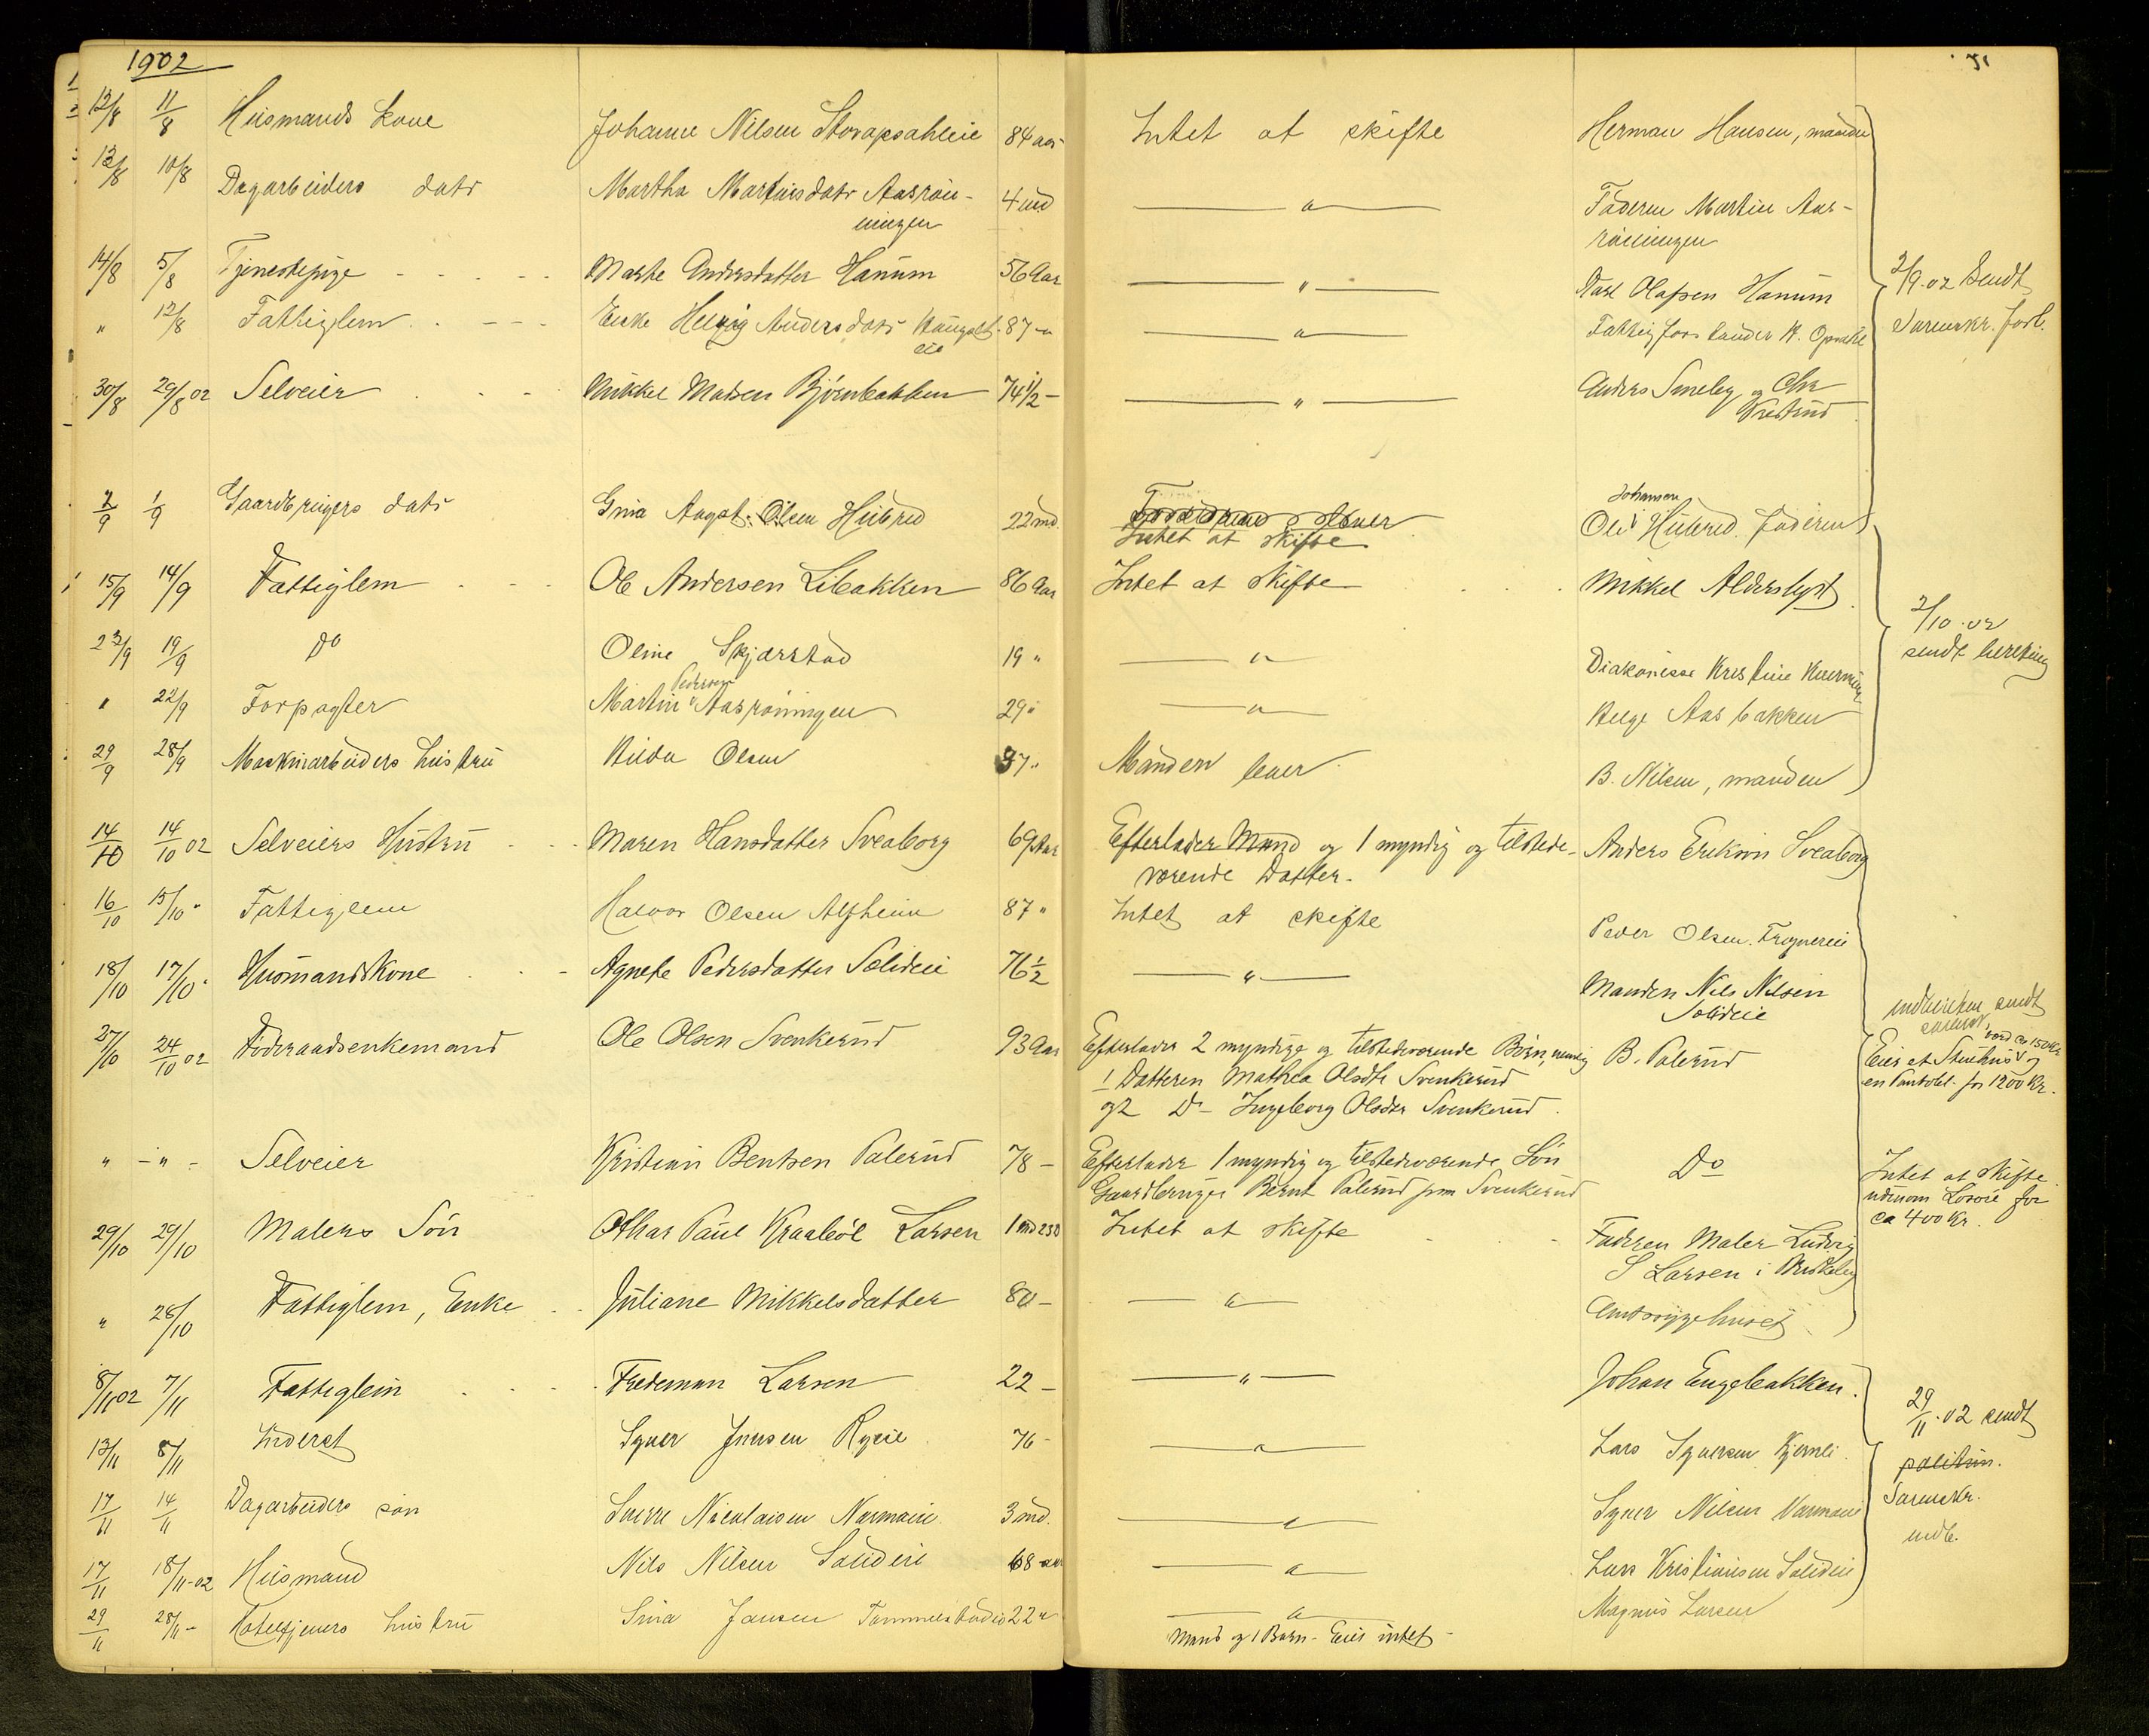 1902
12/8 11/8 Husmands kone Johanne Nilsen 84 aar Intet at skifte Herman Hansen, manden
13/8 10/8 Dagarbeiders datr Martha Martinsdatr Aasrøn- 4 md — " — Faderen Martin Aas-
ningen røningen
14/8 5/8 Tjenestepige Marte Andersdatter Hanum 56 Aar — " — Karl Olafsen Hanum 2/9-02 Sendt
" 12/8 Fattiglem Enke Andersdatr 87 " — " — Fattigforstander K. Opsahl Sorenskr. forb.
eie
30/8 29/8 02 Selveier Mikkel Madsen Bjørnbakken 74 1/2 — — " — Anders Smeby og Chr
Johansen
2/9 1/9 Gaardbrugers datr Gina Augst. Olsen Hubred 22 md. Ole Hubred. Faderen
Intet at skifte
15/9 14/9 Fattiglem Ole Andersen Libakken 86 Aar Intet at skifte Mikkel Alderslyst
2/10-02
23/9 19/9 Do Oline Skjærstad 19 " — " — Diakonisse Kristine sendt
Pedersen
" 22/9 Forpagter Martin Aasrøningen 29 " — " — Helge Aasbakken
29/9 28/9 Maskinarbeiders hustru Hilda Olsen 37 " Manden lever B. Nilsen, manden
14/10 14/10 02 Selveiers Hustru Maren Hansdatter Sveaborg 69 Aar Efterlader Mand og 1 myndig og tilstede- Anders Eriksen Sveaborg
værende Datter.
16/10 15/10 " Fattiglem Halvor Olsen Alfheim 87 " Intet at skifte Peder Olsen. Frognereie
18/10 17/10 " Husmandskone Agnete Pedersdatter Solideie 76 1/2 — " — Manden Nils Nilsen
Solideie
sendt
27/10 24/10 02 Føderaadsenkemand Ole Olsen Svenkerud 93 Aar Efterlader 2 myndige og tilstedeværende Børn, nemlig B. Palerud
værd ca 150 Kr
Eier et Stuehus og
1 Datteren Mathea Olsdtr Svenkerud en Pantobl. for 1200 Kr.
og 2 Do Ingeborg Olsdtr Svenkerud
" - " - Selveier Kristian Bentsen Palerud 78 — Efterlader 1 myndig og tilstedeværende Søn Do Intet at skifte
Gaardbruger Bernt Palerud paa Svenkerud undtagen Løsøre for
ca 400 Kr.
29/10 29/10 Malers Søn Othar Paul Kraabøl Larsen 1 md 23 D Intet at skifte Faderen Maler Ludvig
S Larsen i
" 28/10 Fattiglem, Enke Juliane Mikkelsdatter 80 — — " — Amtssygehuset
8/11 02 7/11 Fattiglem Fredeman Larsen 22 — — " — Johan Engebakken. 29/11-02 sendt
13/11 8/11 Inderst Syver Jensen 76 — — " — Lars Syversen Kjernli politiin.
17/11 14/11 Dagarbeiders søn Sverre Nicolaisen 3 md. — " — Syver Nilsen Sorenskr.
indb.
17/11 18/11-02 Husmand Nils Nilsen Solideie 68 aar — " — Lars Kristiansen Solideie
29/11 28/11 — Hoteltjeners hustru Sina Jansen 22 " — " — Magnus Larsen
Mand og 1 Barn - Eier intet -